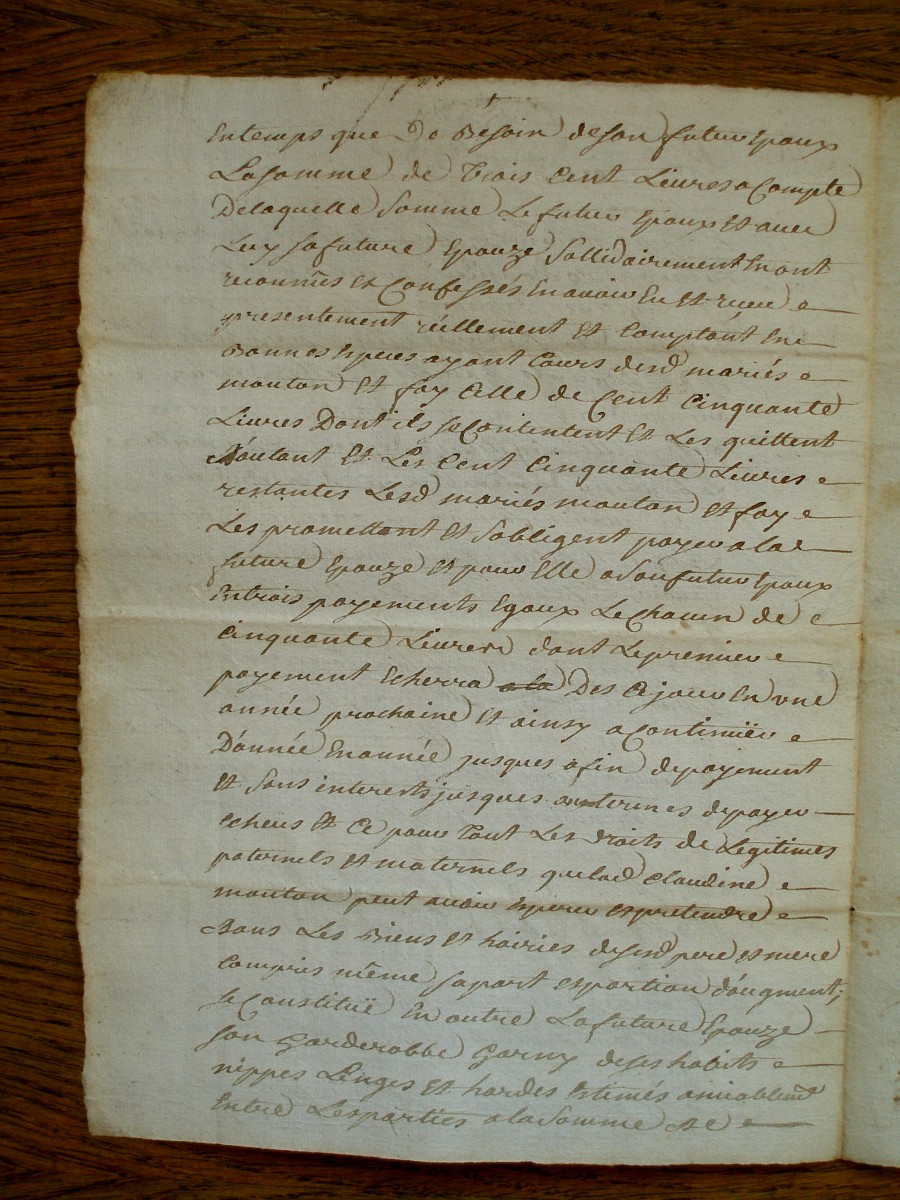 En temps que De Besoin de son futur Epoux
La somme de Trois Cent Livres a Compte
De laquelle somme Le futur Epoux et avec
Luy sa future Epouze Sollidairement En ont
reconnus et Confessés En avoir Eu et receu
presentement reellement et Comptant En
Bonnes Especes ayant Cours desd mariés
mouton Et fay Celle de Cent Cinquante
Livres Dont ils se Contentent Et Les quittent
D'autant Et Les Cent Cinquante Livres
restantes Lesd mariés mouton et fay
Les promettent et S'obligent payer a lad
future Epouze et pour Elle a Son futur Epoux
En trois payements Egaux Le Chacun de
Cinquante Livres dont Le premier
payement Echerra a la Des Ce jour En une
année prochaine Et ainsy a Continüer
D'année En année jusques a fin de payement
et Sans interests jusques aux termes de payer
Echeus Et Ce pour Tout Les Droits de Legitimes
paternels et maternels que lad Claudine
mouton peut avoir Esperer et pretendre
Sans Les Biens et hoiries desesd pere et mere
Compris même sa part et portion d'augment;
Se Constitüe En outre La future Epouze
son Garderobbe Garny de ses habits
nippes Linges et hardes Estimés amiablemt
Entre Les parties a la Somme De